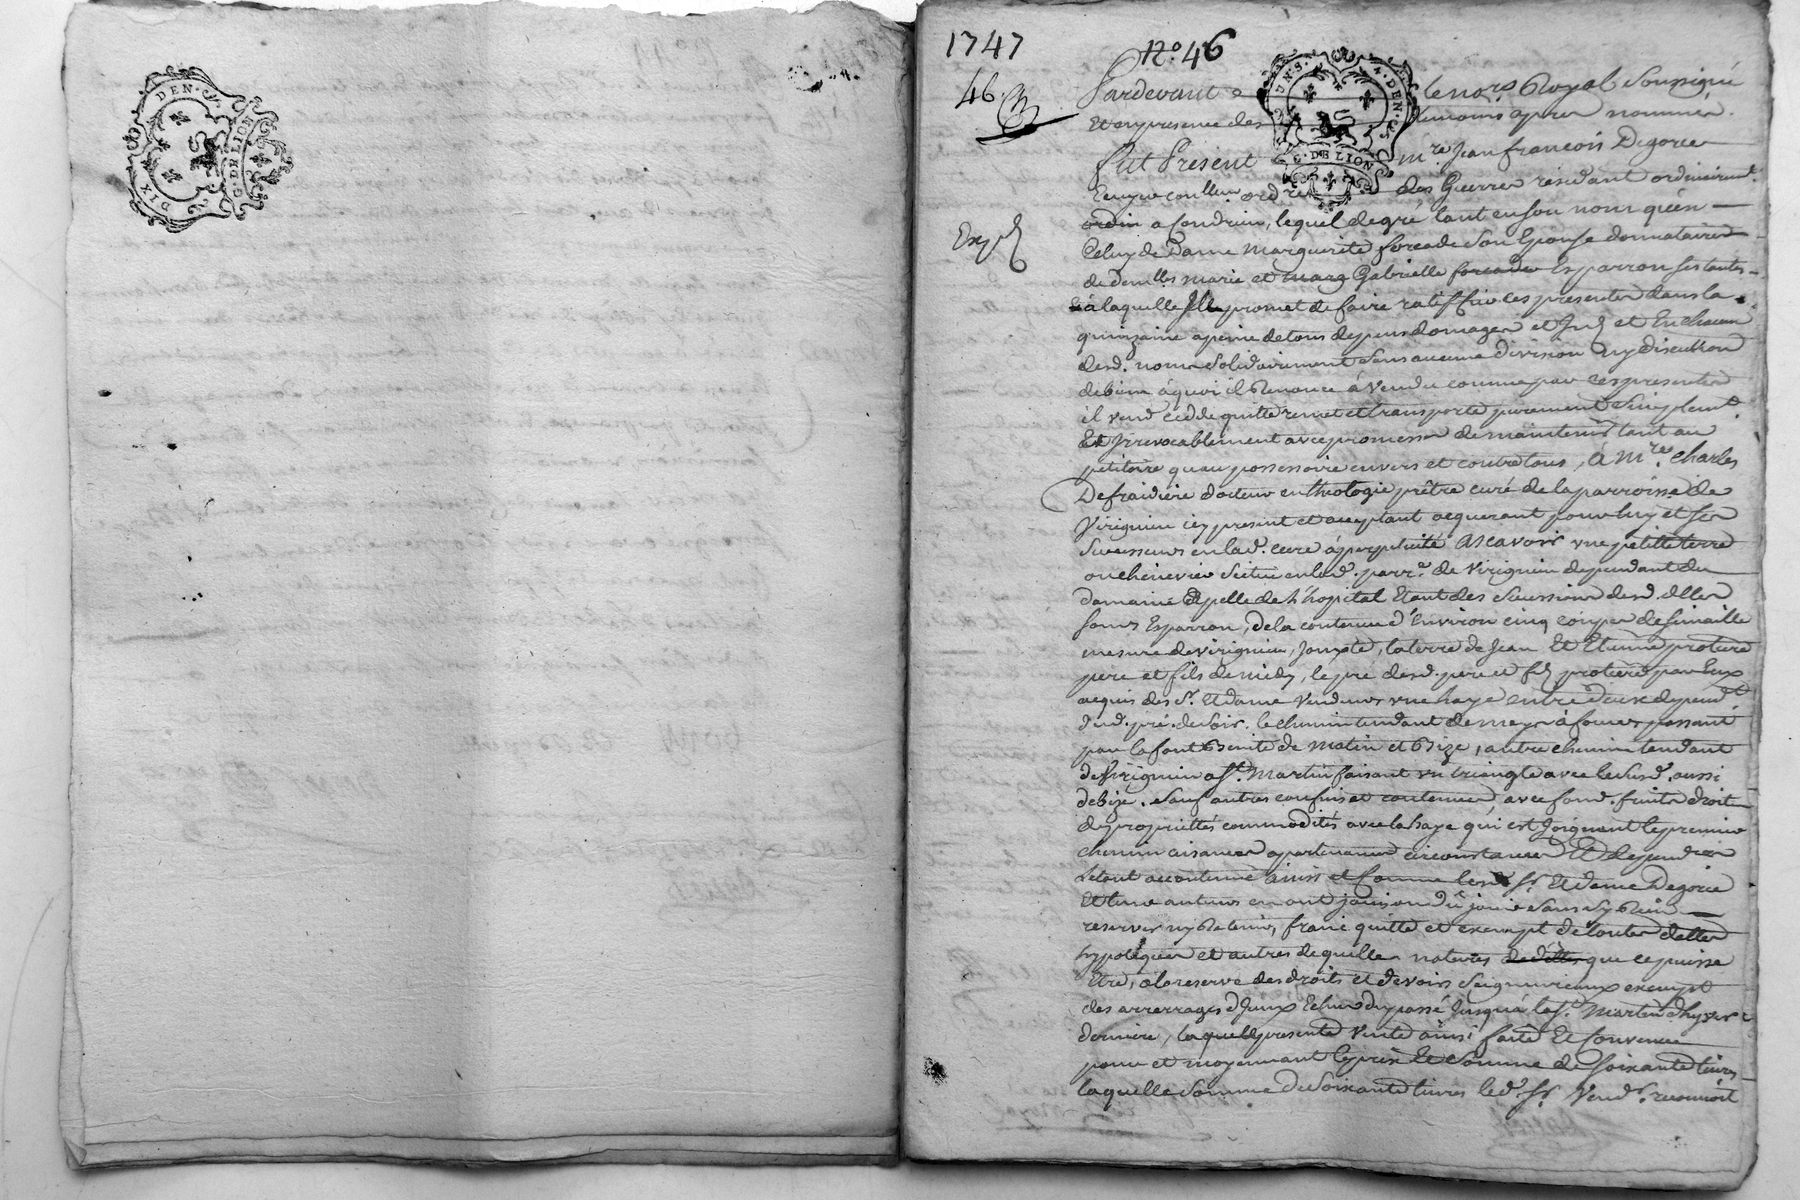 DIX DEN.
G. DE LION
1747
N.o 46
46.
Pardevant le nore Royal Soussigné
Et en presence des temoins apres nommés
DEN.
G. DE LION
Fut Present mre Jean francois Degorée
ordre des Guerres residant ordinairemt
Exp
a Condrieu, lequel de gré tant en son nom qu'en
Celuy de Dame Marguerite forcade Son Epouse donnataire
de demlles marie et marg Gabrielle forcade Esparron ses tantes
a laquelle Il promet de faire ratiffier ces presentes dans la
quinzaine a peine de tous depens domages et et En chacun
desd. noms Solidairement Sans aucune division ny discution
de biens à quoi il Renonce à Vendu comme par ces presentes
il vend cedde quitte remet et transporte purement Simplemt
Et Irrevocablement avec promesse de maintenir tant au
petitoire qu'au possessoire envers et contre tous, à Mre Charles
Defraidiere docteur en theologie prêtre curé de la parroisse de
Virignieu icy present et acceptant acquerant pour luy et ses
Successeurs en lad. cure à perpetuité Ascavoir une petitte terre
ou cheneviere Scitue en lad. parre de Virignieu dependant du
domaine apelle de l'hopital Etant des Successions desd. dlles
Soeurs Esparron, de la contenue d'Environ cinq coupes de Simaille
mesure de virignieu, Jouxte, la terre de Jean Et Etienne protiere
pere et fils de midy, le pré desd. pere et fils protiere par Eux
acquis des Sr. Et dame Vendeurs une haye entre deux dependt
dud. pré de Soir. le chemin tendant de meys à passant
par la font Benite de Matin et Bize, autre chemin tendant
de Virignieu a St Martin faisant un triangle avec le Susd. aussi
de bize. Sauf autres confins et contenues, avec fond. fruits droits
de proprietés commodités avec la haye qui est Joignant le premier
chemin aisances apartenances circonstances Et dependances
Letout accoutumé ainsi et Comme lesd Sr Et dame Degorée
Et leurs auteurs en ont joüi ou dû joüir Sans Sy Rien
reserver ny Retenir, franc quitte et exempt de toutes dettes
hypoteques et autres de quelles natures que ce puisse
Etre, a la reserve des droits et devoirs Seigneuriaux exempt
des arrerages d'Iceux Echus du passé Jusqu'à la St Martin d'hyver
derniere, laquelle presente Vente ainsi faite Et Convenue
pour et moyennant le prix Et Somme de Soixante livres
laquelle Somme de Soixante livres led. Sr. Vendr. reconnoit